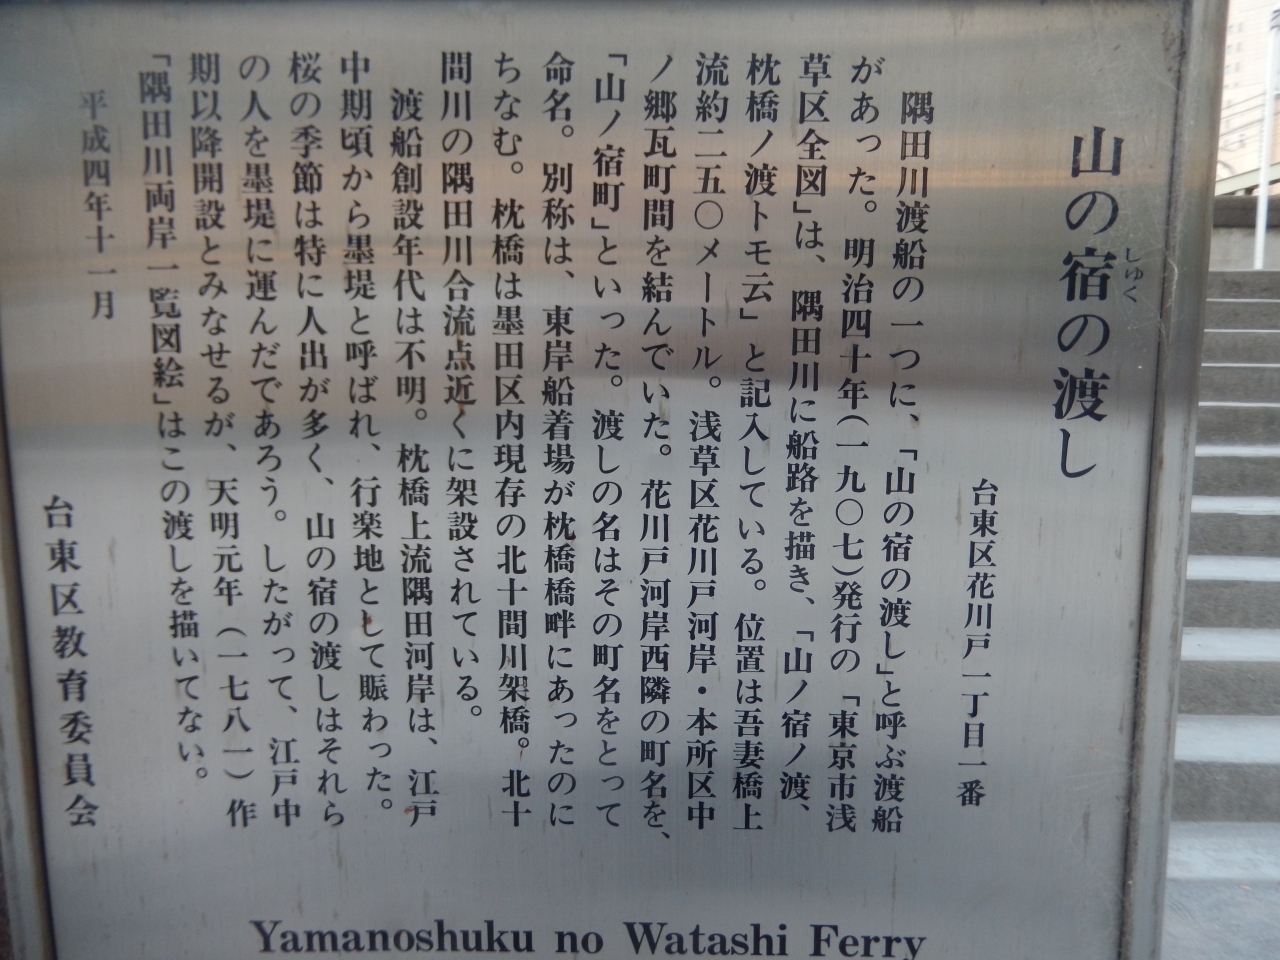 山の宿の渡し
しゅく
台東区花川戸一丁目一番
隅田川渡船の一つに、「山の宿の渡し」と呼ぶ渡船
があった。明治四十年(一九〇七)発行の「東京市浅
草区全図」は、隅田川に船路を描き、「山ノ宿ノ渡、
枕橋ノ渡トモ云」と記入している。位置は吾妻橋上
流約二五〇メートル。浅草区花川戸河岸・本所区中
ノ郷瓦町間を結んでいた。花川戸河岸西隣の町名を、
「山ノ宿町」といった。渡しの名はその町名をとって
命名。別称は、東岸船着場が枕橋橋畔にあったのに
ちなむ。枕橋は墨田区内現存の北十間川架橋。北十
間川の隅田川合流点近くに架設されている。
渡船創設年代は不明。枕橋上流隅田河岸は、江戸
中期頃から墨堤と呼ばれ、行楽地として賑わった。
桜の季節は特に人出が多く、山の宿の渡しはそれら
の人を墨堤に運んだであろう。したがって、江戸中
期以降開設とみなせるが、天明元年(一七八一)作
「隅田川両岸一覧図絵」はこの渡しを描いてない。
平成四年十一月
台東区教育委員会
Yamanoshuku no Watashi Ferry